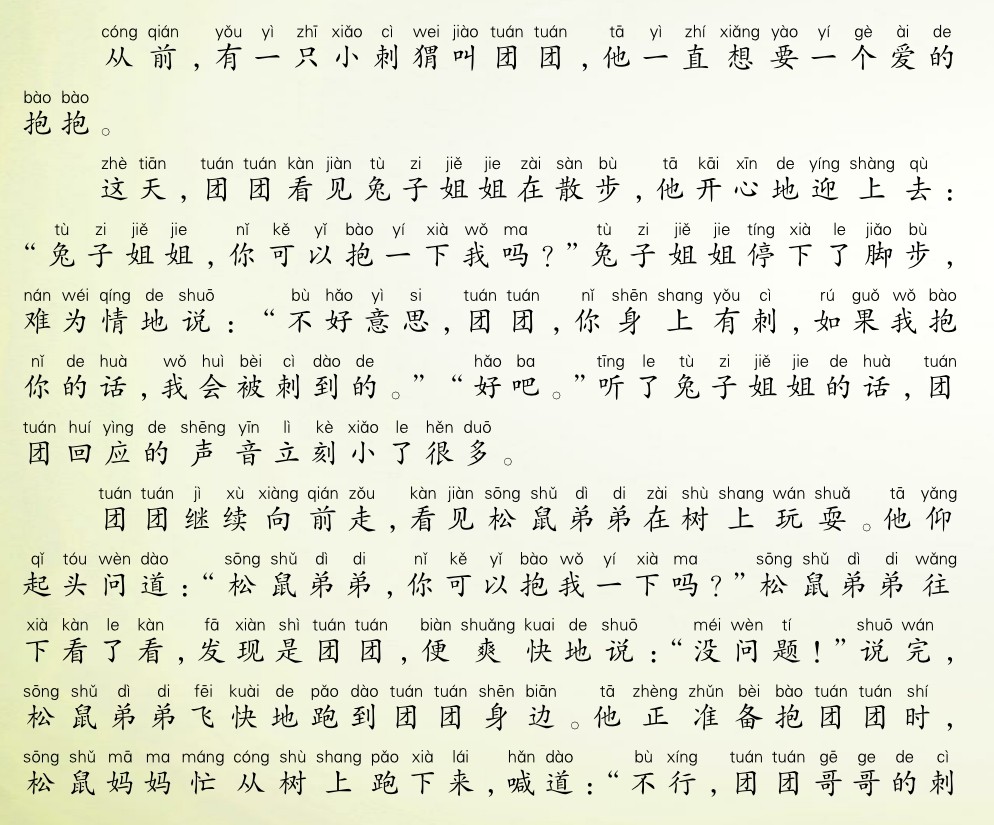 cóng qián yǒu yì zhī xiǎo cì wei jiào tuán tuán tā yì zhí xiǎng yào yí gè ài de
从前,有一只小刺猬叫团团,他一直想要一个爱的
bào bào
抱抱。
zhè tiān tuán tuán kàn jiàn tù zi jiě jie zài sàn bù tā kāi xīn de yíng shàng qù
这天,团团看见兔子姐姐在散步,他开心地迎上去:
tù zi jiě jie nǐ kě yǐ bào yí xià wǒ ma tù zi jiě jie tíng xià le jiǎo bù
“兔子姐姐,你可以抱一下我吗?”兔子姐姐停下了脚步,
nán wéi qíng de shuō bù hǎo yì si tuán tuán nǐ shēn shang yǒu cì rú guǒ wǒ bào
难为情地说:“不好意思,团团,你身上有刺,如果我抱
nǐ de huà wǒ huì bèi cì dào de hǎo ba tīng le tù zi jiě jie de huà tuán
你的话,我会被刺到的。”“好吧。”听了兔子姐姐的话,团
tuán huí yìng de shēng yīn lì kè xiǎo le hěn duō
团回应的声音立刻小了很多。
tuán tuán jì xù xiàng qián zǒu kàn jiàn sōng shǔ dì di zài shù shang wán shuǎ tā yǎng
团团继续向前走,看见松鼠弟弟在树上玩耍。他仰
qǐ tóu wèn dào sōng shǔ dì di nǐ kě yǐ bào wǒ yí xià ma sōng shǔ dì di wǎng
起头问道:“松鼠弟弟,你可以抱我一下吗?”松鼠弟弟往
xià kàn le kàn fā xiàn shì tuán tuán biàn shuǎng kuai de shuō méi wèn tí shuō wán
下看了看,发现是团团,便爽快地说:“没问题!”说完,
sōng shǔ dì di fēi kuài de pǎo dào tuán tuán shēn biān tā zhèng zhǔn bèi bào tuán tuán shí
松鼠弟弟飞快地跑到团团身边。他正准备抱团团时,
sōng shǔ mā ma máng cóng shù shang pǎo xià lái hǎn dào bù xíng tuán tuán gē ge de cì
松鼠妈妈忙从树上跑下来,喊道:“不行,团团哥哥的刺